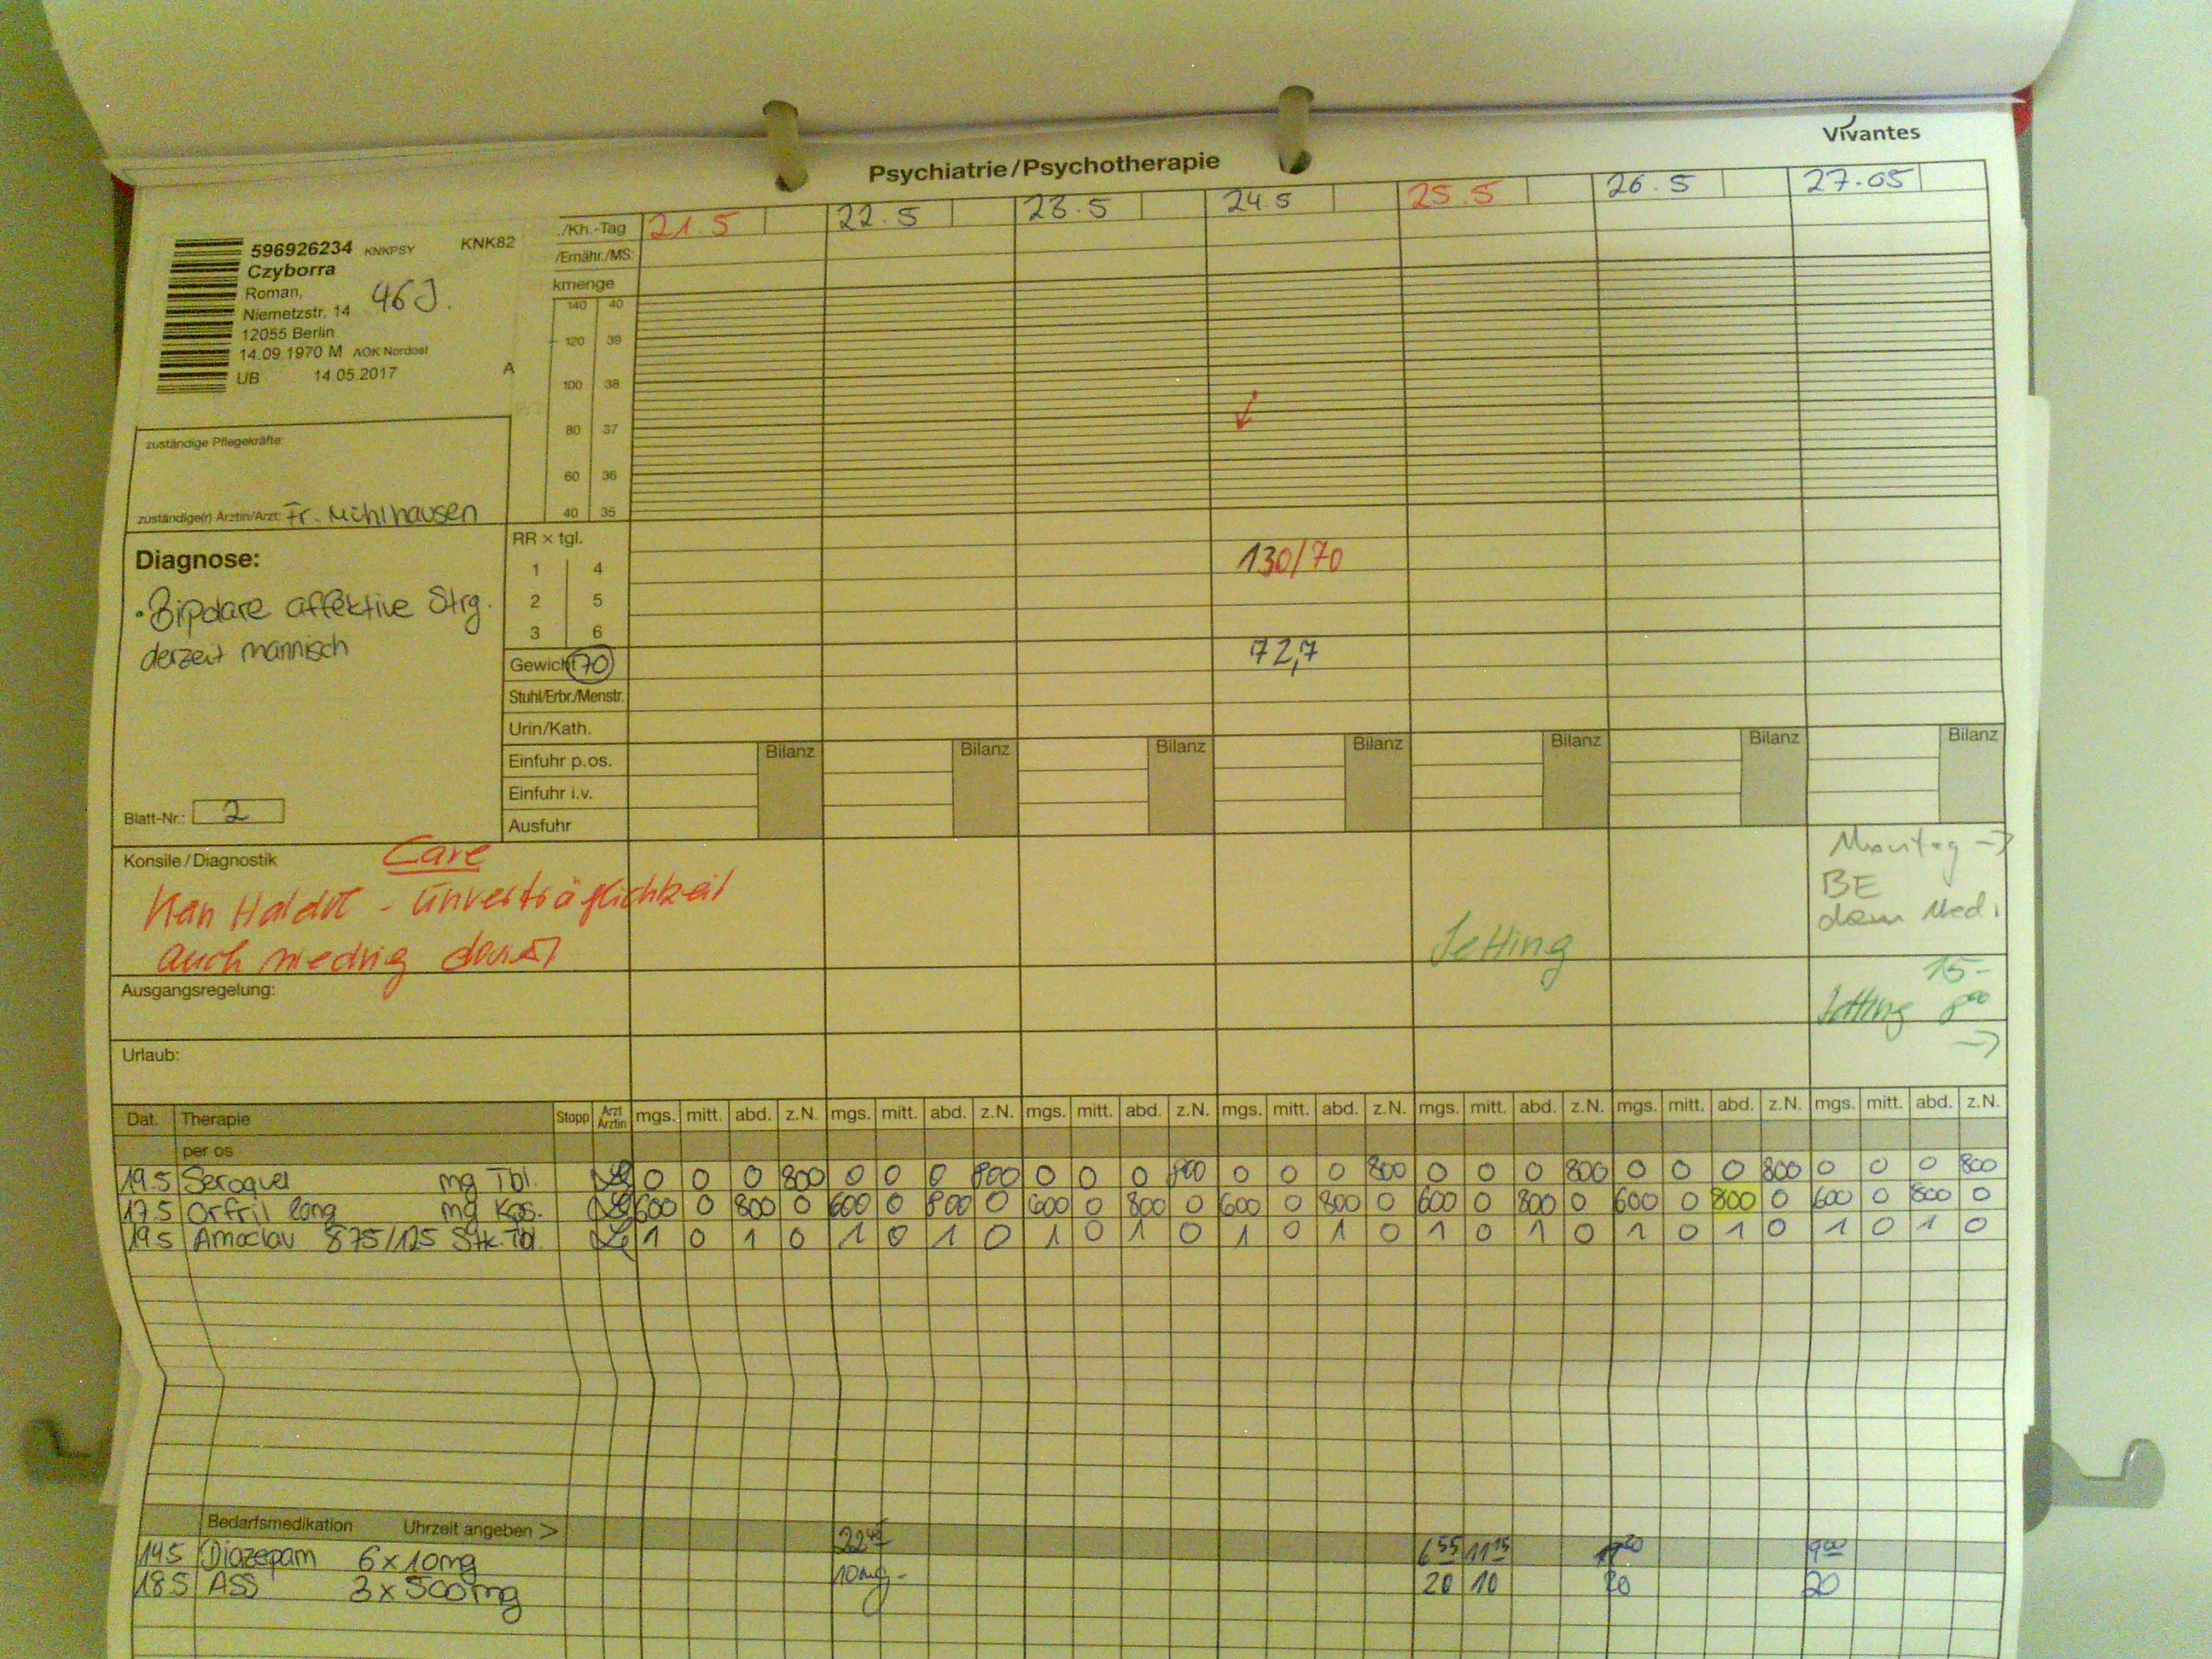 Vivantes
Psychiatrie/Psychotherapie
./Kh.-Tag 21.5 22.5 23.5 24.5 25.5 26.5 27.05
/Ernähr./MS:
kmenge
596926234 KNKPSY KNK82
Czyborra
Roman,
46 J.
Niemetzstr. 14
12055 Berlin
14.09.1970 M AOK Nordost
UB 14.05.2017 A
140 40
120 39
100 38
80 37
60 36
40 35
zuständige Pflegekräfte:
zuständige(r) Ärztin/Arzt: Fr. Mühlhausen
Diagnose:
· Bipolare affektive Strg.
derzeit mannisch
Blatt-Nr.: 2
RR × tgl.
1 4 130/70
2 5
3 6
Gewicht 70 72,7
Stuhl/Erbr./Menstr.
Urin/Kath.
Einfuhr p.os. Bilanz Bilanz Bilanz Bilanz Bilanz Bilanz Bilanz
Einfuhr i.v.
Ausfuhr
Konsile/Diagnostik
Cave
Kein Haldol - Unverträglichkeit
auch niedrig
Setting
Montag →
BE
dann Med.
Ausgangsregelung:
15-
Setting 8⁰⁰
→
Urlaub:
Dat. Therapie Stopp Arzt Ärztin mgs. mitt. abd. z.N. mgs. mitt. abd. z.N. mgs. mitt. abd. z.N. mgs. mitt. abd. z.N. mgs. mitt. abd. z.N. mgs. mitt. abd. z.N. mgs. mitt. abd. z.N.
per os
19.5 Seroquel mg Tbl. 0 0 0 800 0 0 0 800 0 0 0 800 0 0 0 800 0 0 0 800 0 0 0 800 0 0 0 800
17.5 Orfril long mg Kps. 600 0 800 0 600 0 800 0 600 0 800 0 600 0 800 0 600 0 800 0 600 0 800 0 600 0 800 0
19.5 Amoclav 875/125 Stk. Tbl. 1 0 1 0 1 0 1 0 1 0 1 0 1 0 1 0 1 0 1 0 1 0 1 0 1 0 1 0
Bedarfsmedikation Uhrzeit angeben >
19.5 Diazepam 6 x 10mg 6⁵⁵ 11¹⁵ 9⁰⁰
18.5 ASS 3 x 500mg 10mg 20 10 20 20